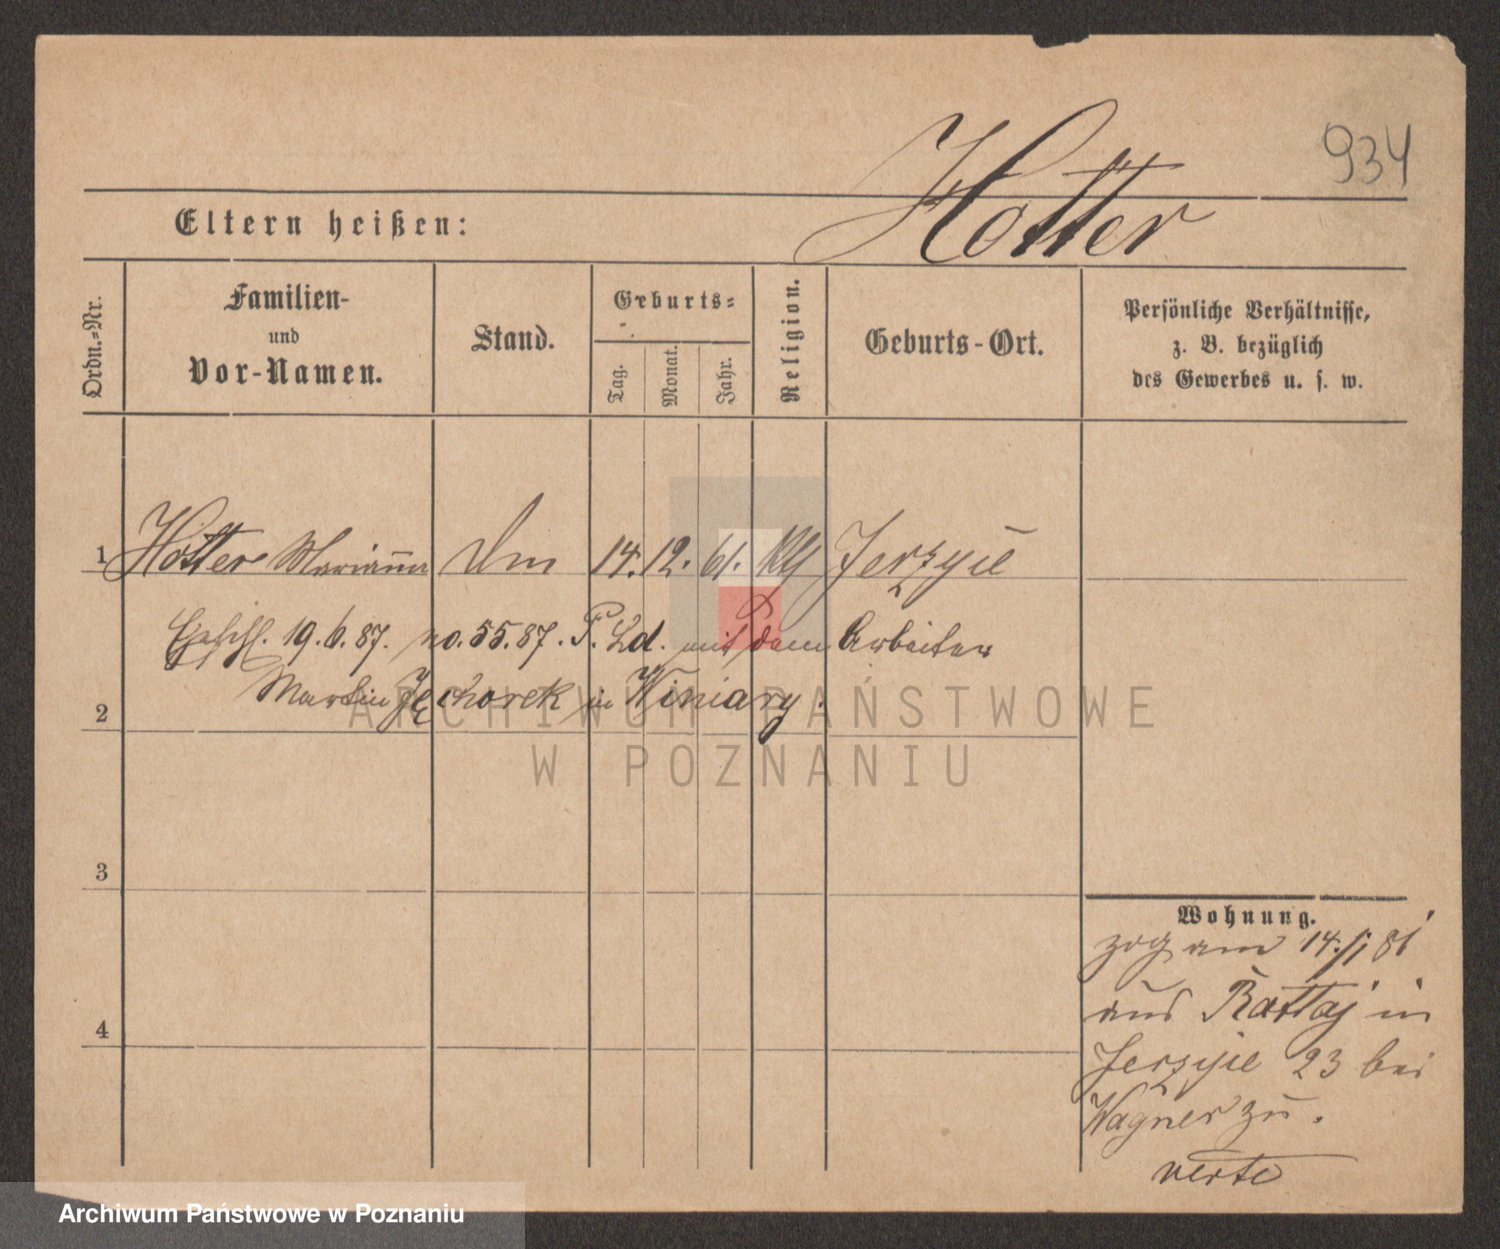 934
Hotter
Eltern heißen:
Ordn.-Nr.
Familien-
und
Vor-Namen.
Stand.
Geburts-
Tag.
Monat.
Jahr.
Religion.
Geburts-Ort.
Persönliche Verhältnisse,
z. B. bezüglich
des Gewerbes u. s. w.
1 Hotter Marianna 14. 12. 61. Jerzyce
19. 6. 87. no. 55. 87. P. Ld. mit dem Arbeiter
Martin Jechorek in Winiary.
2
3
4
Wohnung.
zog am 14./1 81
aus Rattaj in
Jerzyce 23 bei
Wagner zu.
verte
ARCHIWUM PAŃSTWOWE
W POZNANIU
Archiwum Państwowe w Poznaniu